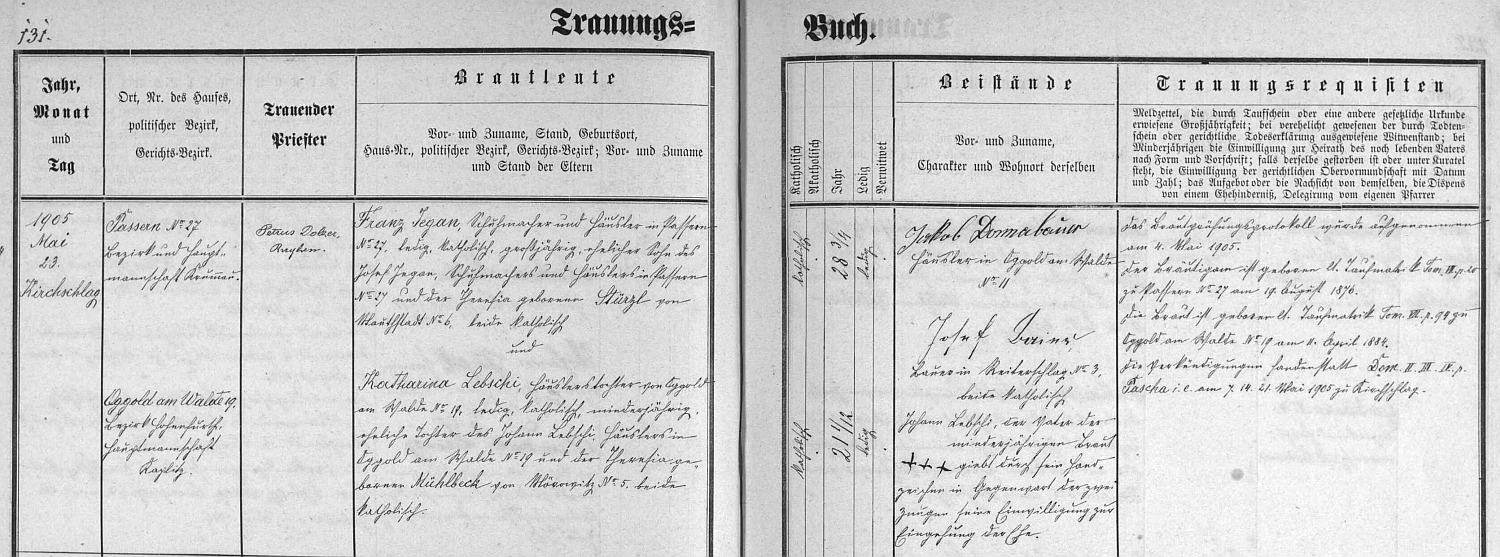 131.
Trauungs=
Buch.
Jahr,
Monat
und
Tag
Ort, Nr. des Hauses,
politischer Bezirk,
Gerichts-Bezirk.
Trauender
Priester
Brautleute
Vor- und Zuname, Stand, Geburtsort,
Haus-Nr., politischer Bezirk, Gerichts-Bezirk; Vor- und Zuname
und Stand der Eltern
Katholisch
Akatholisch
Jahr
Ledig
Verwitwet
Beistände
Vor- und Zuname,
Charakter und Wohnort derselben
Trauungsrequisiten
Meldzettel, die durch Taufschein oder eine andere gesetzliche Urkunde
erwiesene Großjährigkeit; bei verehelicht gewesenen der durch Todten-
schein oder gerichtliche Todeserklärung ausgewiesene Witwenstand; bei
Minderjährigen die Einwilligung zur Heirath des noch lebenden Vaters
nach Form und Vorschrift; falls derselbe gestorben ist oder unter Kuratel
steht, die Einwilligung der gerichtlichen Obervormundschaft mit Datum
und Zahl; das Aufgebot oder die Nachsicht von demselben, die Dispens
von einem Ehehinderniß, Delegirung vom eigenen Pfarrer
1905
Mai
23.
Kirchschlag
Passern No 27
Bezirk und Haupt-
mannschaft Krummau.
Oggold am Walde 19.
Bezirk Hohenfurth,
Hauptmannschaft
Kaplitz.
Petrus Dolzer
Franz Jegan, Schuhmacher und Häusler in Passern
No 27, ledig, katholisch, großjährig, ehelicher Sohn des
Josef Jegan, Schuhmachers und Häuslers in Passern
No 27 und der Theresia geborener Stürzl von
Mauthstadt No 6, beide katholisch
und
Katharina Lebschi, Häuslerstochter von Oggold
am Walde No 19, ledig, katholisch, minderjährig,
eheliche Tochter des Johann Lebschi, Häuslers in
Oggold am Walde No 19 und der Theresia ge-
borener Mühlbeck von Mörowitz No 5, beide
katholisch.
katholisch
28 3/4
ledig
katholisch
21 1/12
ledig
Jakob
Häusler in Oggold am Walde
No 11
Josef
Bauer in Reiterschlag No 3,
beide katholisch
Johann Lebschi, der Vater der
minderjährigen Braut
+++ giebt durch sein Hand-
zeichen in Gegenwart der zwei
Zeugen seine Einwilligung zur
Eingehung der Ehe.
Das Brautprüfungsprotokoll wurde aufgenommen
am 4. Mai 1905.
Der Bräutigam ist geboren lt. Taufmatrik Tom. III. p.
zu Passern No 27 am 19. August 1876.
Die Braut ist geboren lt. Taufmatrik Tom. VII. p. 94 zu
Oggold am Walde No 19 am 11. April 1884.
Die Verkündigungen fanden statt Dom. II. III. IV. p.
Pascha i. e. am 7. 14. 21. Mai 1905 zu Kirchschlag.